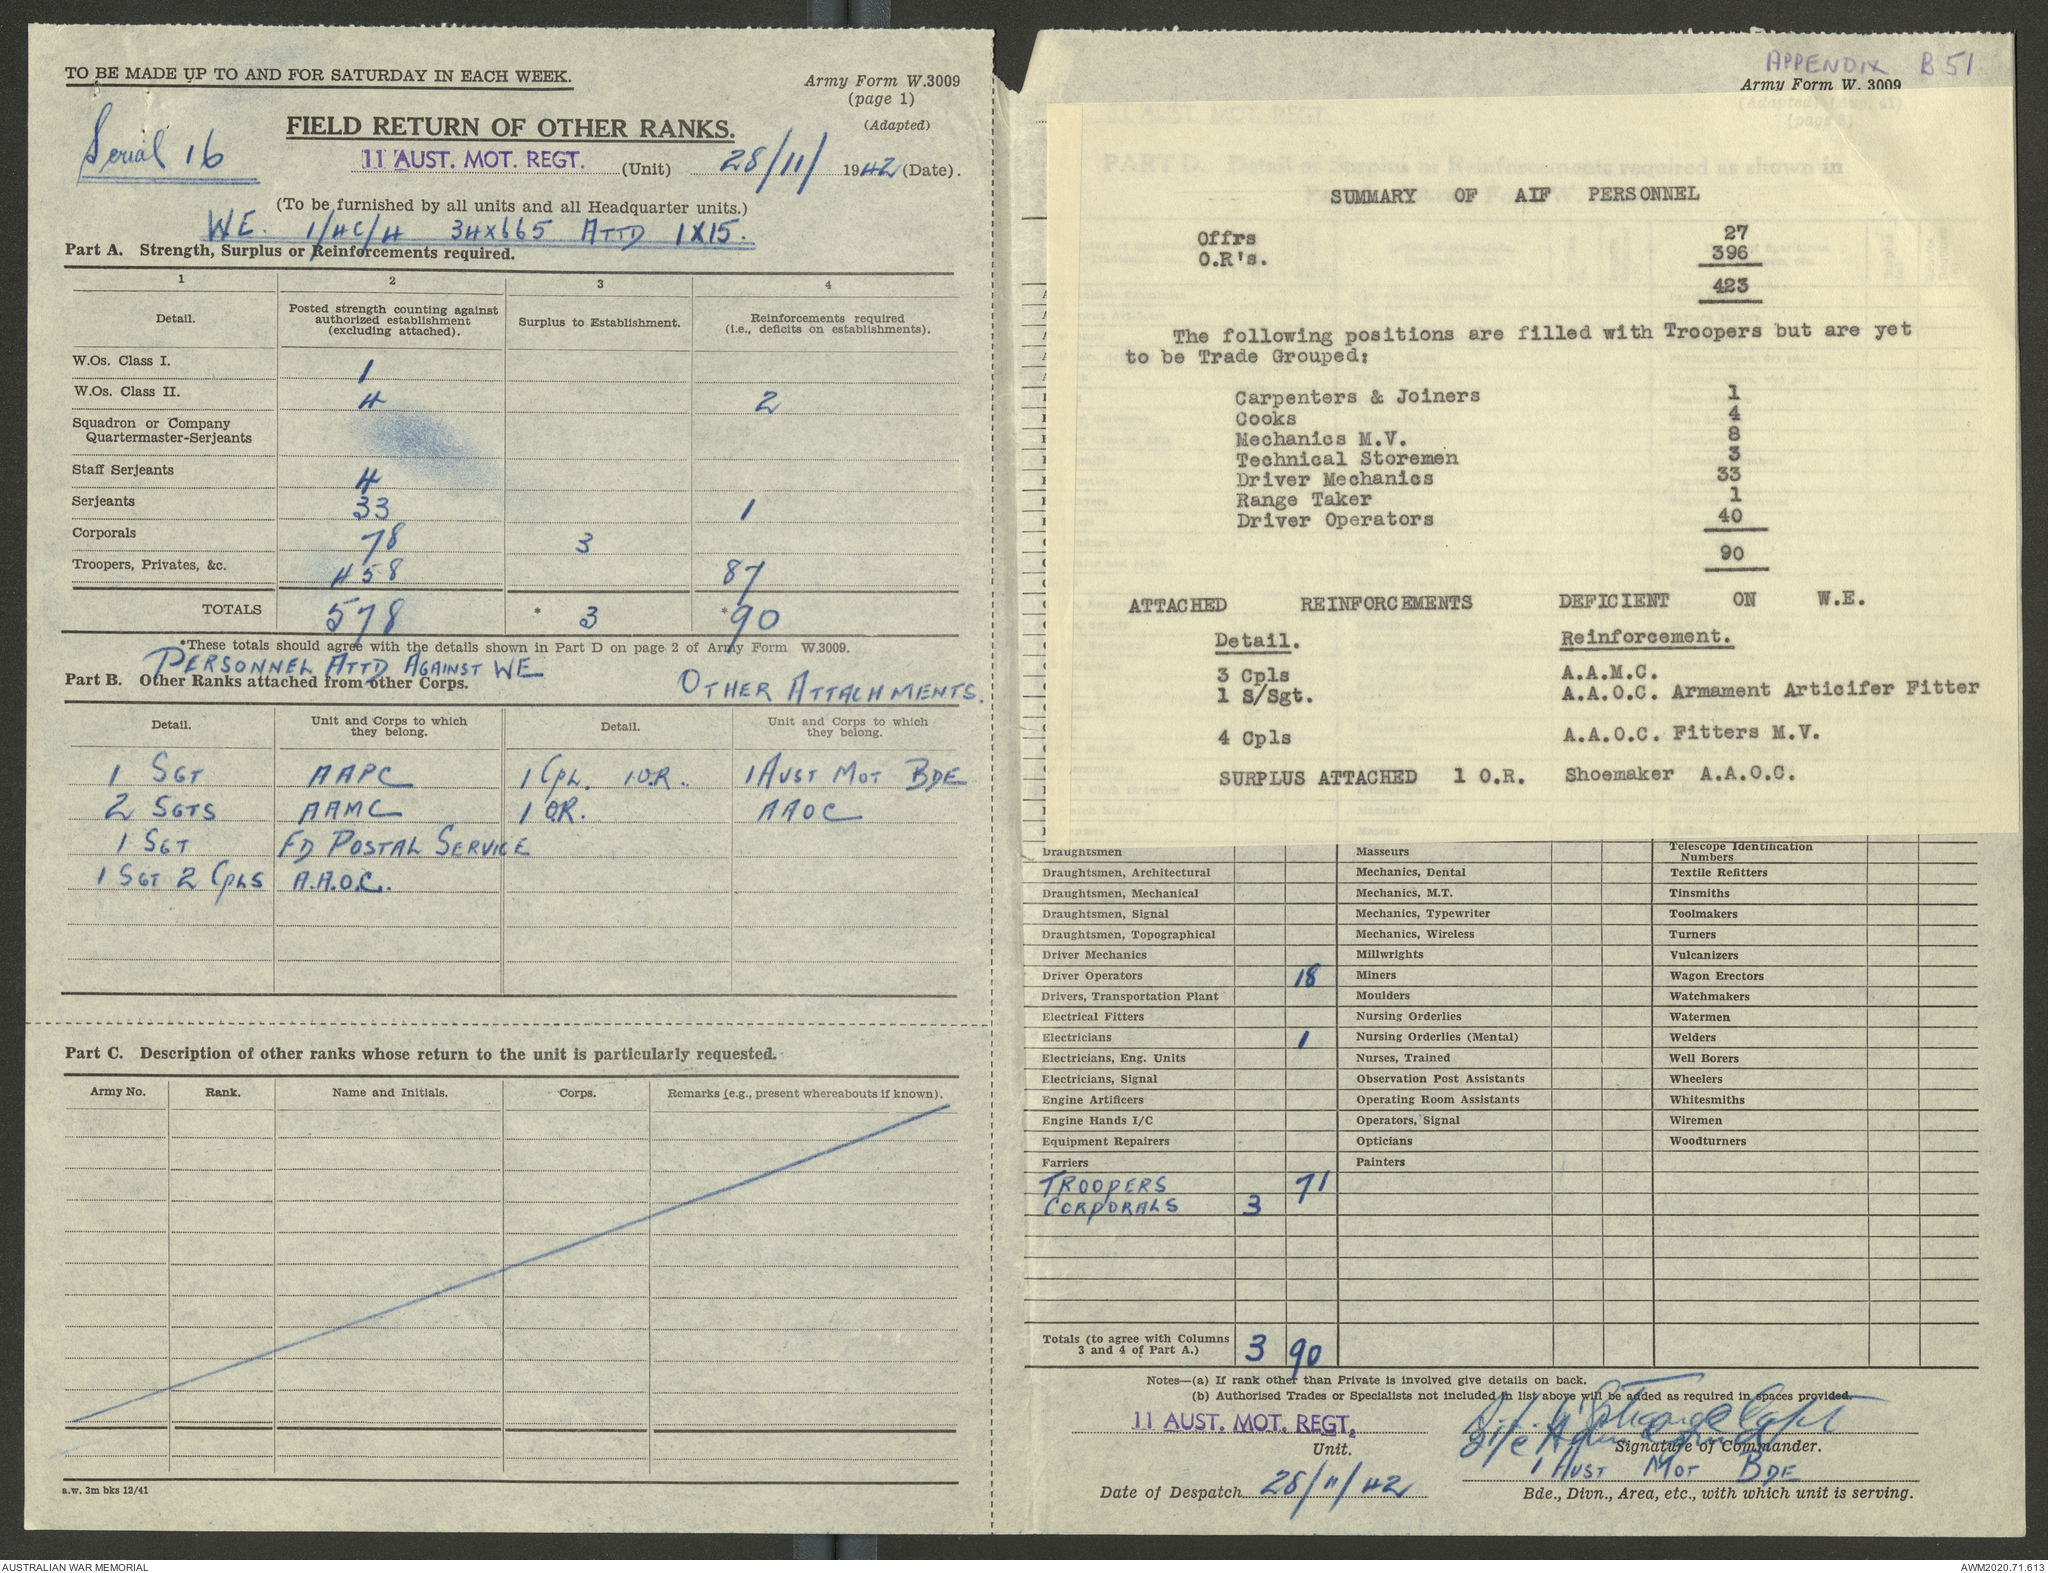 TO BE MADE UP TO AND FOR SATURDAY IN EACH WEEK.
Army Form W.3009
(page 1)
(Adapted)
Serial 16
FIELD RETURN OF OTHER RANKS.
11 AUST. MOT. REGT. (Unit) 28/11/ 1942 (Date).
(To be furnished by all units and all Headquarter units.)
WE. 1/4C/4 34X665 ATTD 1X15.
Part A. Strength, Surplus or Reinforcements required.
1 2 3 4
Detail. Posted strength counting against authorized establishment (excluding attached). Surplus to Establishment. Reinforcements required (i.e., deficits on establishments).
W.Os. Class I. 1
W.Os. Class II. 4 2
Squadron or Company
Quartermaster-Serjeants
Staff Serjeants 4
Serjeants 33 1
Corporals 78 3
Troopers, Privates, &c. 458 87
TOTALS 578 * 3 * 90
*These totals should agree with the details shown in Part D on page 2 of Army Form W.3009.
PERSONNEL ATTD AGAINST WE
Part B. Other Ranks attached from other Corps. OTHER ATTACHMENTS.
Detail. Unit and Corps to which they belong. Detail. Unit and Corps to which they belong.
1 SGT AAPC 1 CPL. 1 O.R. 1 AUST MOT BDE
2 SGTS AAMC 1 O.R. AAOC
1 SGT FD POSTAL SERVICE
1 SGT 2 CPLS A.A.O.C.
Part C. Description of other ranks whose return to the unit is particularly requested.
Army No. Rank. Name and Initials. Corps. Remarks (e.g., present whereabouts if known).
a.w. 3m bks 12/41
APPENDIX B 51
Army Form W. 3009
SUMMARY OF AIF PERSONNEL
Offrs 27
O.R's. 396
423
The following positions are filled with Troopers but are yet
to be Trade Grouped:
Carpenters & Joiners 1
Cooks 4
Mechanics M.V. 8
Technical Storemen 3
Driver Mechanics 33
Range Taker 1
Driver Operators 40
90
ATTACHED REINFORCEMENTS DEFICIENT ON W.E.
Detail. Reinforcement.
3 Cpls A.A.M.C.
1 S/Sgt. A.A.O.C. Armament Articifer Fitter
4 Cpls A.A.O.C. Fitters M.V.
SURPLUS ATTACHED 1 O.R. Shoemaker A.A.O.C.
Draughtsmen Masseurs Telescope Identification Numbers
Draughtsmen, Architectural Mechanics, Dental Textile Refitters
Draughtsmen, Mechanical Mechanics, M.T. Tinsmiths
Draughtsmen, Signal Mechanics, Typewriter Toolmakers
Draughtsmen, Topographical Mechanics, Wireless Turners
Driver Mechanics Millwrights Vulcanizers
Driver Operators 18 Miners Wagon Erectors
Drivers, Transportation Plant Moulders Watchmakers
Electrical Fitters Nursing Orderlies Watermen
Electricians 1 Nursing Orderlies (Mental) Welders
Electricians, Eng. Units Nurses, Trained Well Borers
Electricians, Signal Observation Post Assistants Wheelers
Engine Artificers Operating Room Assistants Whitesmiths
Engine Hands I/C Operators, Signal Wiremen
Equipment Repairers Opticians Woodturners
Farriers Painters
TROOPERS 71
CORPORALS 3
Totals (to agree with Columns 3 and 4 of Part A.) 3 90
Notes—(a) If rank other than Private is involved give details on back.
(b) Authorised Trades or Specialists not included in list above will be added as required in spaces provided.
11 AUST. MOT. REGT. Capt
Unit. Signature of Commander.
1 AUST MOT BDE
Date of Despatch 28/11/42 Bde., Divn., Area, etc., with which unit is serving.
AUSTRALIAN WAR MEMORIAL AWM2020.71.613